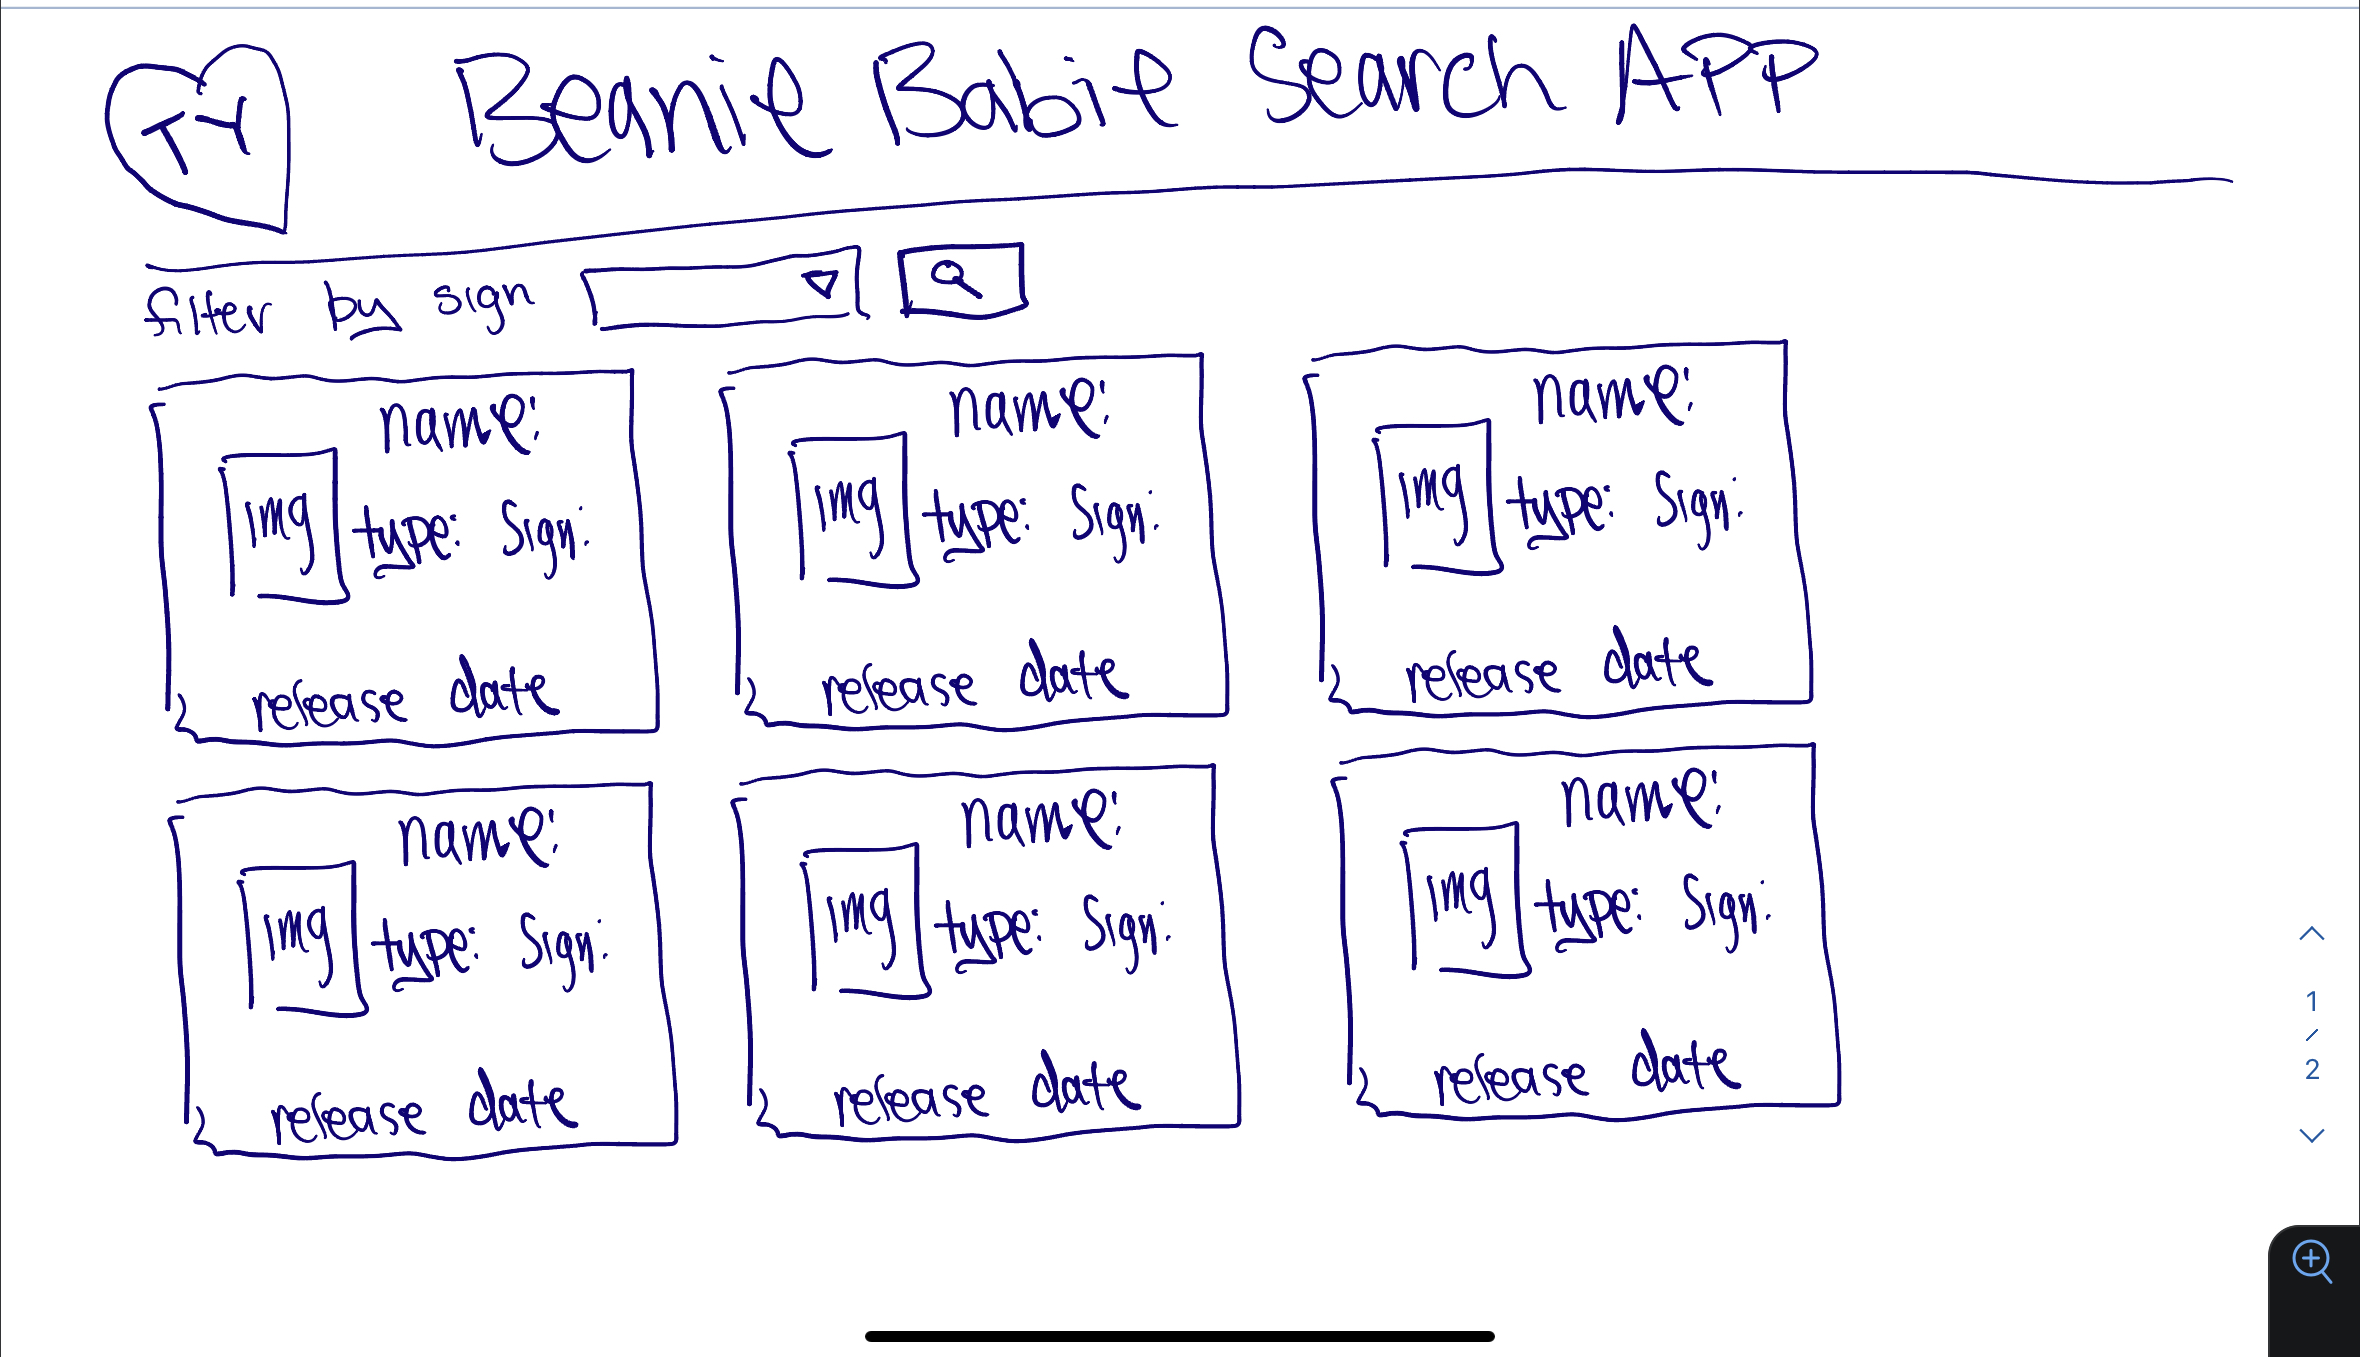 TY
Beanie Babie Search APP
filter by sign
name:
img type: Sign:
release date
name:
img type: Sign:
release date
name:
img type: Sign:
release date
name:
img type: Sign:
release date
name:
img type: Sign:
release date
name:
img type: Sign:
release date
1
/
2